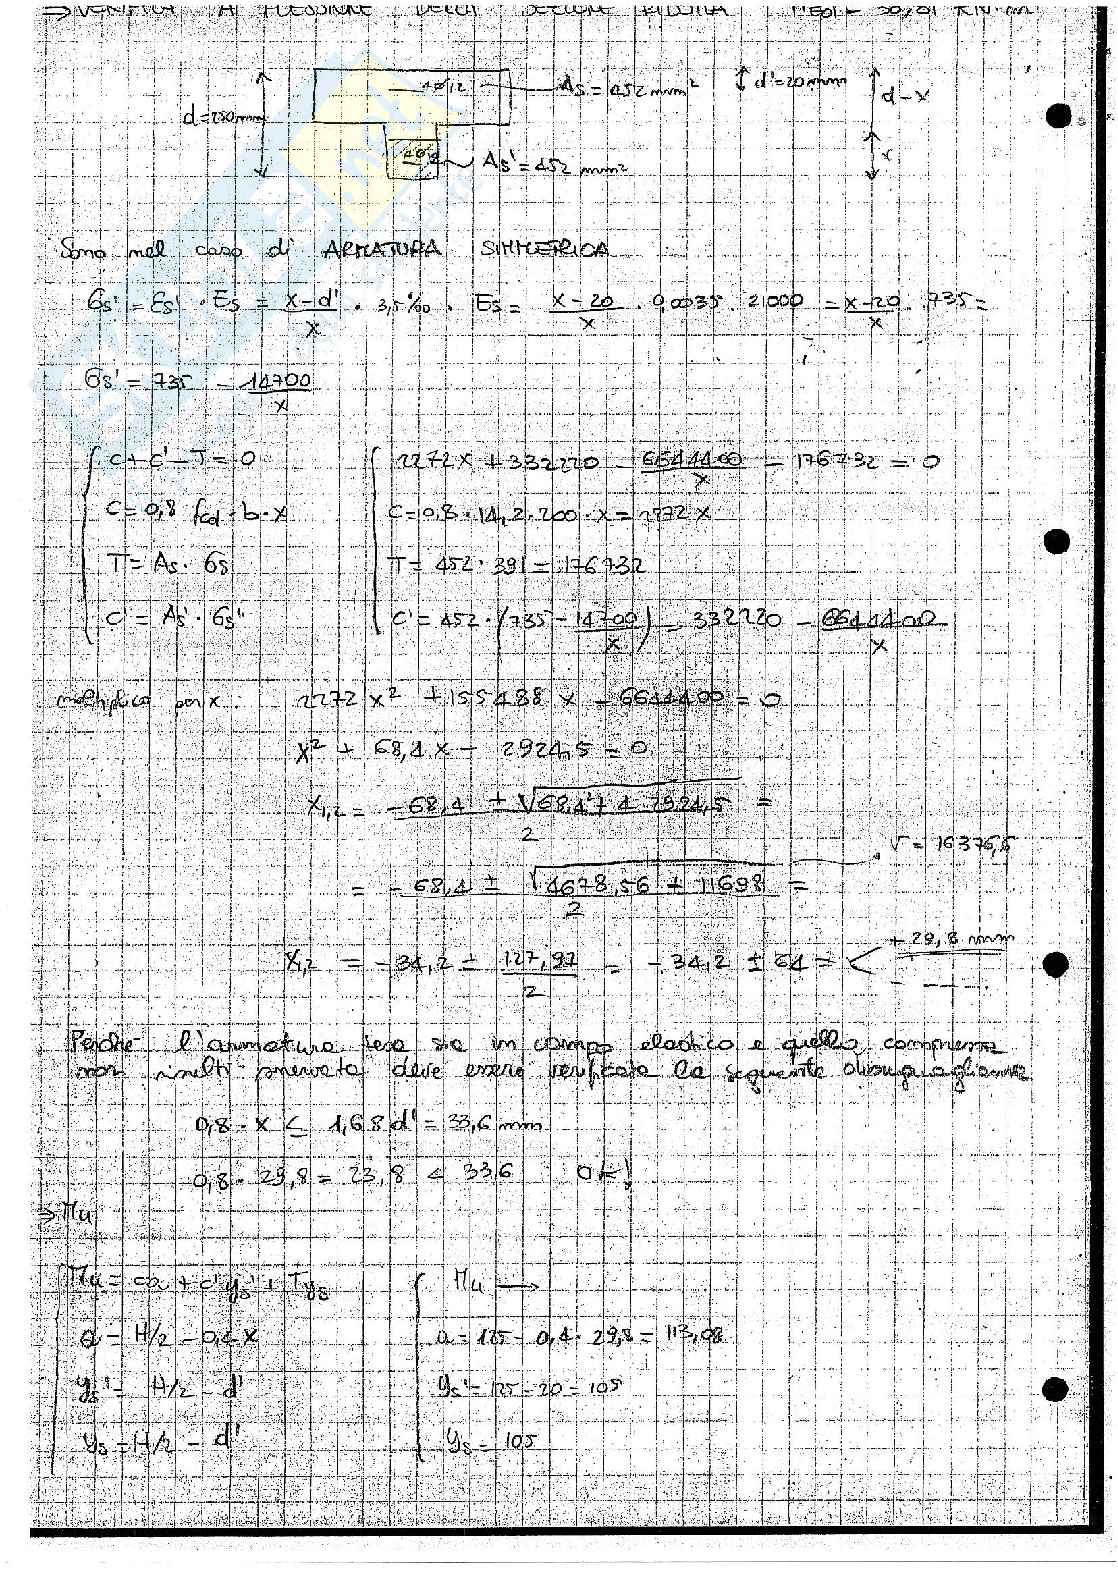 ⇒ VERIFICA A FLESSIONE DELLA SEZIONE RIDOTTA
4Ø12 As = 452 mm² d'=20mm d-x
d=230mm
4Ø12 As' = 452 mm² x
Sono nel caso di ARMATURA SIMMETRICA
σs' = εs' · Es = x-d'/x · 3,5‰ · Es = x-20/x · 0,0035 · 210000 = x-20/x · 735 =
σs' = 735 - 14700/x
C + C' - T = 0 2272x + 332220 - 6644400/x - 176732 = 0
C = 0,8 fcd · b · x C = 0,8 · 14,2 · 200 · x = 2272x
T = As · σs T = 452 · 391 = 176732
C' = As' · σs' C' = 452 · (735 - 14700/x) = 332220 - 6644400/x
moltiplico per x: 2272x² + 155488x - 6644400 = 0
x² + 68,4x - 2924,5 = 0
x1,2 = -68,4 ± √68,4² + 4 · 2924,5 / 2 =
√ = 16376,5
= -68,4 ± √4678,56 + 11698 / 2 =
x1,2 = -34,2 ± 127,97/2 = -34,2 ± 64 = < +29,8 mm
Perchè l'armatura tesa sia in campo elastico e quella compressa
non risulti snervata deve essere verificata la seguente disuguaglianza
0,8 · x ≤ 1,68 d' = 33,6 mm
0,8 · 29,8 = 23,8 < 33,6 ok!
⇒ Mu
Mu = Ca + C'ys' + Tys Mu →
a = H/2 - 0,4x a = 125 - 0,4 · 29,8 = 113,08
ys' = H/2 - d' ys' = 125 - 20 = 105
ys = H/2 - d' ys = 105